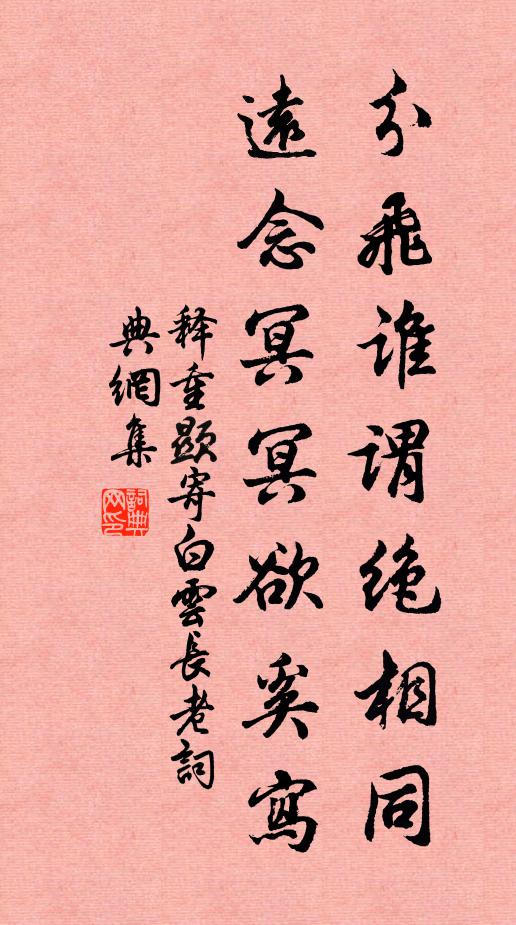 分飛誰謂絶相同
遠念冥冥欲奚寫
释重顯寄白雲長老詞
典網集
詞典
网印